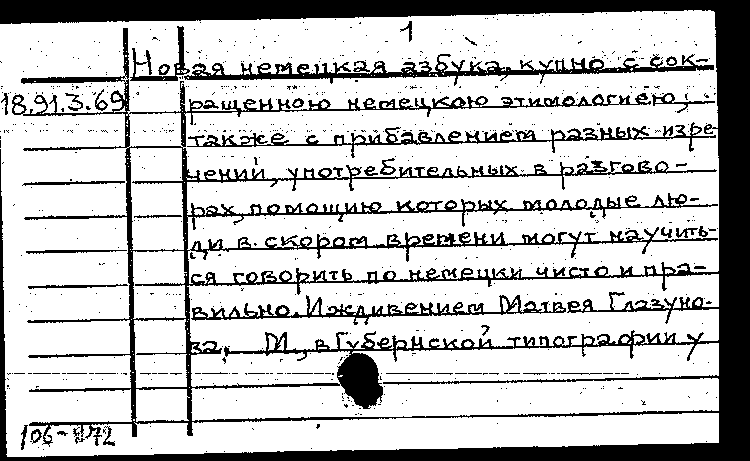 1
Новая немецкая азбука, купно с сок-
18.91.3.69 ращенною немецкою этимологиею,
также с прибавлением разных изре
чений, употребительных в разгово-
рах, помощию которых молодые лю-
ди в скором времени могут научить-
ся говорить по немецки чисто и пра-
вильно. Иждивением Матвея Глазуно-
ва. М., в Губернской типографии у